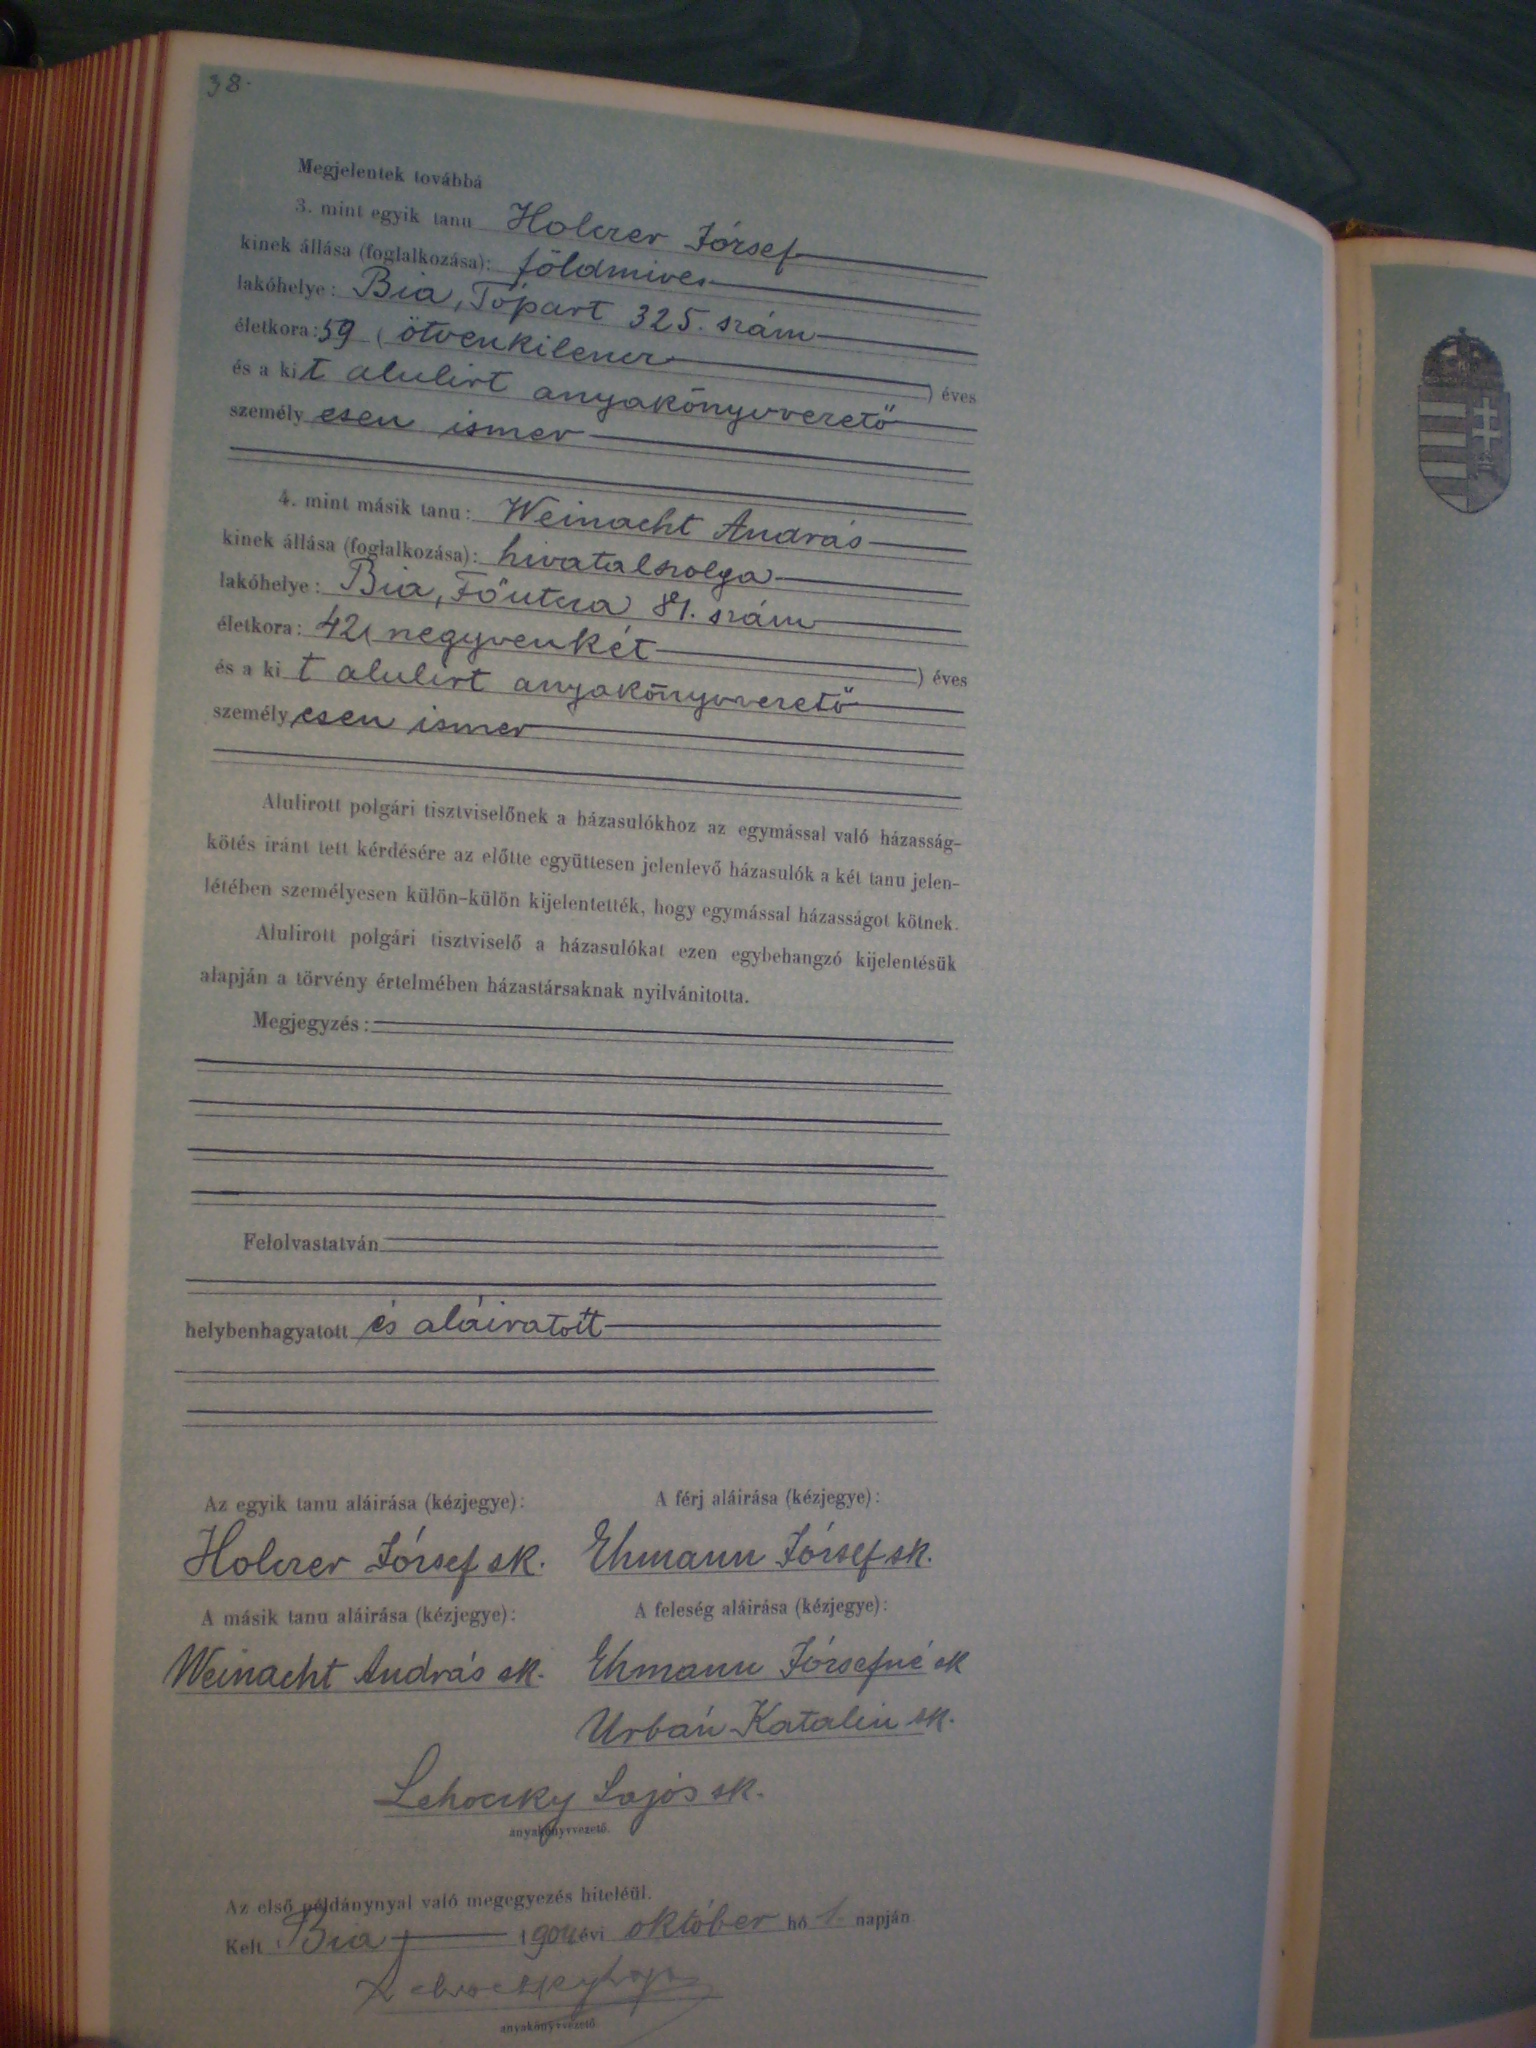 38.
Megjelentek továbbá
3. mint egyik tanu Holczer József
kinek állása (foglalkozása): földmives
lakóhelye: Bia, Tópart 325. szám
életkora: 59 (ötvenkilencz) éves
és a kit alulirt anyakönyvvezető
személyesen ismer
4. mint másik tanu: Weinacht András
kinek állása (foglalkozása): hivatalszolga
lakóhelye: Bia, Főutcza 81. szám
életkora: 42 (negyvenkét) éves
és a kit alulirt anyakönyvvezető
személyesen ismer
Alulirott polgári tisztviselőnek a házasulókhoz az egymással való házasság-
kötés iránt tett kérdésére az előtte együttesen jelenlevő házasulók a két tanu jelen-
létében személyesen külön-külön kijelentették, hogy egymással házasságot kötnek.
Alulirott polgári tisztviselő a házasulókat ezen egybehangzó kijelentésük
alapján a törvény értelmében házastársaknak nyilvánitotta.
Megjegyzés:
Felolvastatván
helybenhagyatott és aláiratott
Az egyik tanu aláirása (kézjegye): A férj aláirása (kézjegye):
Holczer József sk. Ehmann József sk.
A másik tanu aláirása (kézjegye): A feleség aláirása (kézjegye):
Weinacht András sk. Ehmann Józsefné sk
Urbán Katalin sk.
Lehoczky Lajos sk.
anyakönyvvezető.
Az első példánynyal való megegyezés hiteléül.
Kelt Bia 1904 évi október hó 1. napján
Lehoczky Lajos
anyakönyvvezető